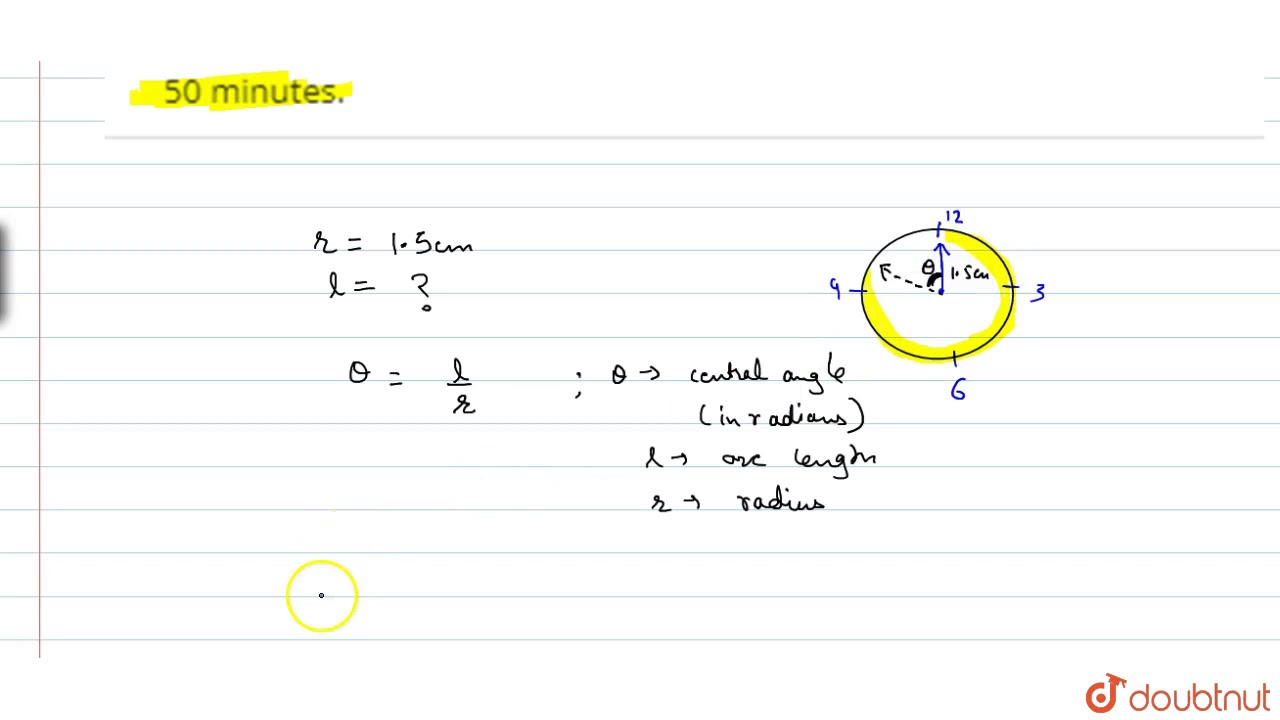 50 minutes.
r = 1.5cm
l = ?
θ = l/r ; θ → central angle
(in radians)
l → arc length
r → radius
12
θ 1.5cm
9 3
6
doubtnut